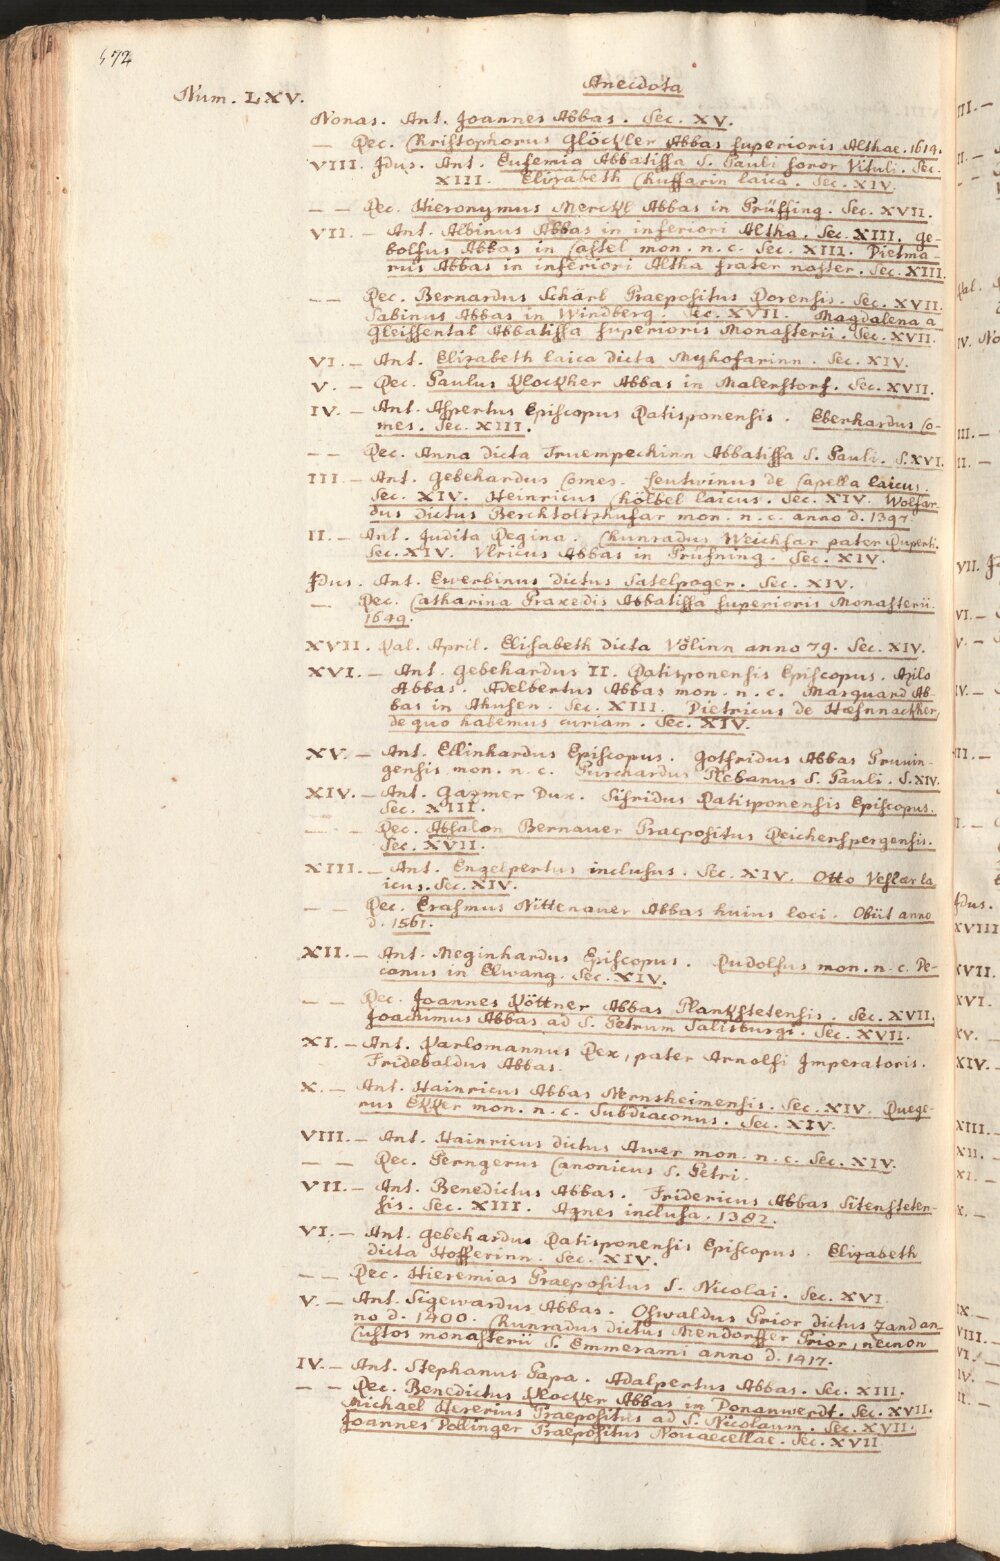 572
Anecdota
Num. LXV.
Nonas. Ant. Joannes Abbas. Sec. XV.
— Rec. Christophorus Glöckler Abbas superioris Althae. 1614.
VIII. Idus. Ant. Eufemia Abbatissa S. Pauli soror Vituli. Sec.
XIII. Elizabeth Chuffarin laica. Sec. XIV.
— — Rec. Hieronymus Merckl Abbas in Prüffing. Sec. XVII.
VII. — Ant. Albinus Abbas in inferiori Altha. Sec. XIII. Ge-
bolfus Abbas in Castel mon. n. c. Sec. XIII. Dietma-
rus Abbas in inferiori Altha frater noster. Sec. XIII.
— — Rec. Bernardus Schärl Praepositus Rorensis. Sec. XVII.
Sabinus Abbas in Windberg. Sec. XVII. Magdalena a
Gleissental Abbatissa superioris Monasterii. Sec. XVII.
VI. — Ant. Elizabeth laica dicta Myhofarinn. Sec. XIV.
V. — Rec. Paulus Klockher Abbas in Malerstorf. Sec. XVII.
IV. — Ant. Aspertus Episcopus Ratisponensis. Eberhardus Co-
mes. Sec. XIII.
— — Rec. Anna dicta Truempechinn Abbatissa S. Pauli. S. XVI.
III — Ant. Gebehardus Comes. Leutwinus de Capella laicus.
Sec. XIV. Heinricus Chölbel laicus. Sec. XIV. Wolfar-
dus dictus Berchtoltzhusar mon. n. c. anno d. 1397.
II. — Ant. Judita Regina. Chunradus Weichsar pater Ruperti.
Sec. XIV. Vlricus Abbas in Prüfning. Sec. XIV.
Idus. Ant. Ewerbinus dictus Satelpoger. Sec. XIV.
— Rec. Catharina Praxedis Abbatissa superioris Monasterii.
1649.
XVII. Kal. April. Elisabeth dicta Völinn anno 79. Sec. XIV.
XVI. — Ant. Gebehardus II. Ratisponensis Episcopus. Azilo
Abbas. Adelbertus Abbas mon. n. c. Marquard Ab-
bas in Ahusen. Sec. XIII. Dietricus de Hæsnnackher,
de quo habemus curiam. Sec. XIV.
XV. — Ant. Ellinhardus Episcopus. Gotfridus Abbas Pruuin-
gensis mon. n. c. Purchardus Plebanus S. Pauli. S. XIV.
XIV. — Ant. Gazmer Dux. Sifridus Ratisponensis Episcopus.
Sec. XIII.
— — Rec. Absalon Bernauer Praepositus Reicherspergensis.
Sec. XVII.
XIII. — Ant. Engelpertus inclusus. Sec. XIV. Otto Veslar la
icus. Sec. XIV.
— — Rec. Erasmus Nittenauer Abbas huius loci. Obiit anno
d. 1561.
XII. — Ant. Meginhardus Episcopus. Rudolfus mon. n. c. De-
canus in Elwang. Sec. XIV.
— — Rec. Joannes Köttner Abbas Plankstetensis. Sec. XVII.
Joachimus Abbas ad S. Petrum Salisburgi. Sec. XVII.
XI. — Ant. Karlomannus Rex, pater Arnolfi Imperatoris.
Fridebaldus Abbas.
X. — Ant. Hainricus Abbas Nernsheimensis. Sec. XIV. Ruege-
rus Ekker mon. n. c. Subdiaconus. Sec. XIV.
VIII. — Ant. Hainricus dictus Awer mon. n. c. Sec. XIV.
— — Rec. Perngerus Canonicus S. Petri.
VII. — Ant. Benedictus Abbas. Fridericus Abbas Sitensteten-
sis. Sec. XIII. Agnes inclusa. 1382.
VI. — Ant. Gebehardus Ratisponensis Episcopus. Elizabeth
dicta Hofferinn. Sec. XIV.
— — Rec. Hieremias Praepositus S. Nicolai. Sec. XVI.
V. — Ant. Sigewardus Abbas. Oswaldus Prior dictus Zandan-
no d. 1400. Chunradus dictus Mendorffer Prior, necnon
Custos monasterii S. Emmerami anno d. 1417.
IV. — Ant. Stephanus Papa. Adalpertus Abbas. Sec. XIII.
— — Rec. Benedictus Klocker Abbas in Donanwerdt. Sec. XVII.
Michael Hererius Praepositus ad S. Nicolaum. Sec. XVII.
Joannes Dollinger Praepositus Nouaecellae. Sec. XVII